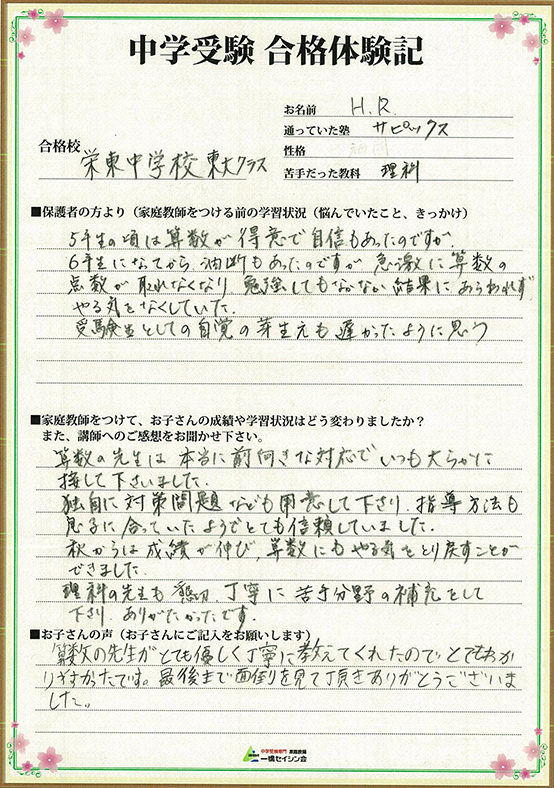 中学受験 合格体験記
お名前 H.R.
通っていた塾 サピックス
合格校 栄東中学校 東大クラス
性格
苦手だった教科 理科
■保護者の方より（家庭教師をつける前の学習状況（悩んでいたこと、きっかけ）
5年生の頃は算数が得意で自信もあったのですが、
6年生になってから油断もあったのですが急激に算数の
点数が取れなくなり勉強してもなかなか結果にあらわれず
やる気をなくしていた.
受験生としての自覚の芽生えも遅かったように思う
■家庭教師をつけて、お子さんの成績や学習状況はどう変わりましたか？
また、講師へのご感想をお聞かせ下さい。
算数の先生は本当に前向きな対応でいつも大らかに
接して下さいました.
独自に対策問題なども用意して下さり、指導方法も
息子に合っていたようでとても信頼していました.
秋からは成績が伸び,算数にもやる気をとり戻すことが
できました.
理科の先生も懇切、丁寧に苦手分野の補充をして
下さり、ありがたかったです.
■お子さんの声（お子さんにご記入をお願いします）
算数の先生がとても優しく丁寧に教えてくれたのでとてもわか
りやすかったです。最後まで面倒を見て頂きありがとうございま
した。
中学受験専門 家庭教師
一橋セイシン会